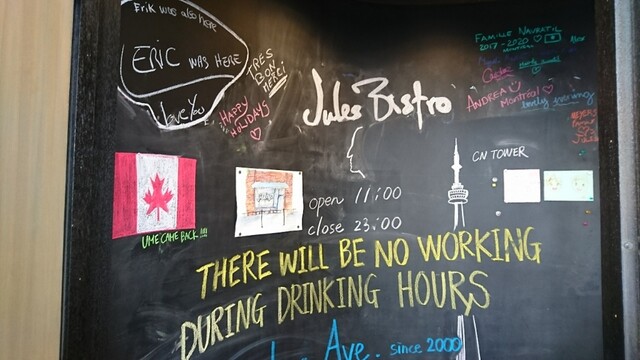 Erik was also here
ERIC WAS HERE
I love You
TRES
BON
MERCI
HAPPY
HOLIDAYS
Jules Bistro
FAMILLE NAVRATIL
2017-2020
ANDREA
Montréal
CN TOWER
open 11:00
close 23:00
UME CAME BACK !!!!
THERE WILL BE NO WORKING
DURING DRINKING HOURS
Ave. since 2000